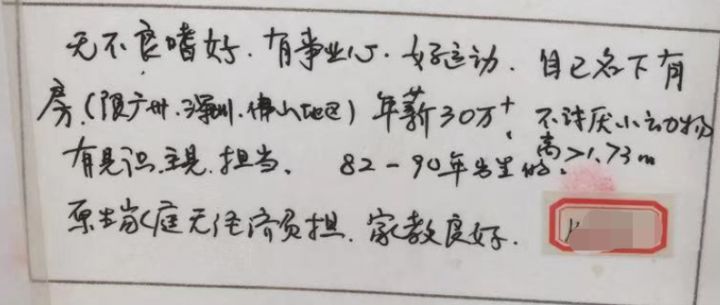 无不良嗜好.有事业心.好运动.自己名下有
房.(限广州.深圳.佛山地区)年薪30万+.不讨厌小动物
有见识.主見.担当. 82-90年出生的.高>1.73m
原生家庭无经济负担.家教良好.